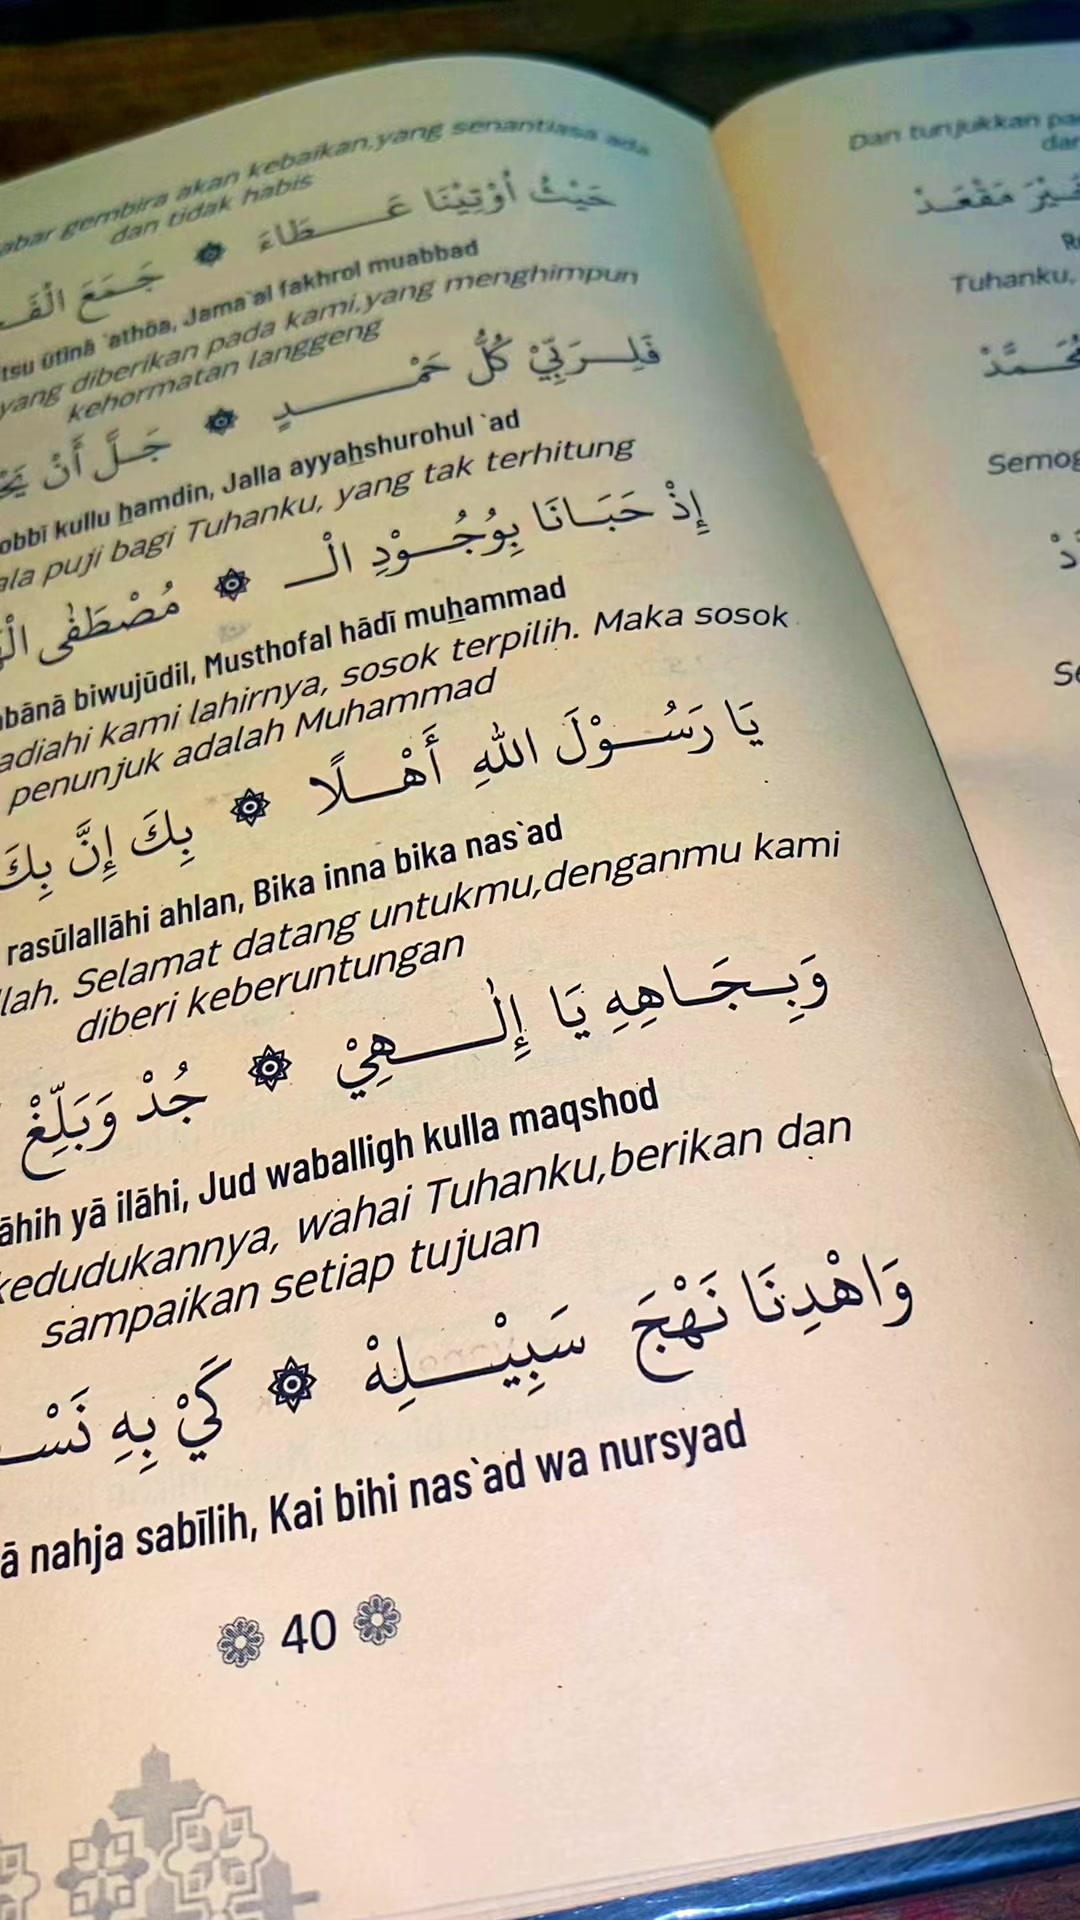 abar gembira akan kebaikan,yang senantiasa ada
dan tidak habis
حَيْثُ أُوْتِيْنَا عَــطَاءً ۞ جَـمَعَ
utīnā `athōa, Jama`al fakhrol muabbad
yang diberikan pada kami,yang menghimpun
kehormatan langgeng
فَلِـرَبِّيْ كُلُّ حَمْـــدٍ ۞ جَـلَّ أَنْ
kullu hamdin, Jalla ayyahshurohul `ad
puji bagi Tuhanku, yang tak terhitung
إِذْ حَبَـانَا بِوُجُـوْدِ الْـ ۞ مُصْطَفٰى
biwujūdil, Musthofal hādī muhammad
kami lahirnya, sosok terpilih. Maka sosok
penunjuk adalah Muhammad
يَا رَسُـوْلَ اللهِ أَهْـلًا ۞ بِكَ إِنَّ بِكَ
rasūlallāhi ahlan, Bika inna bika nas`ad
llah. Selamat datang untukmu,denganmu kami
diberi keberuntungan
وَبِـجَـاهِهِ يَا إِلٰـــهِيْ ۞ جُدْ وَبَلِّغْ
āhih yā ilāhi, Jud waballigh kulla maqshod
kedudukannya, wahai Tuhanku,berikan dan
sampaikan setiap tujuan
وَاهْدِنَا نَهْجَ سَبِيْـــلِهْ ۞ كَيْ بِهِ نَسْـ
ā nahja sabīlih, Kai bihi nas`ad wa nursyad
40
Dan tunjukkan
مَقْعَدْ
Tuhanku,
Semog